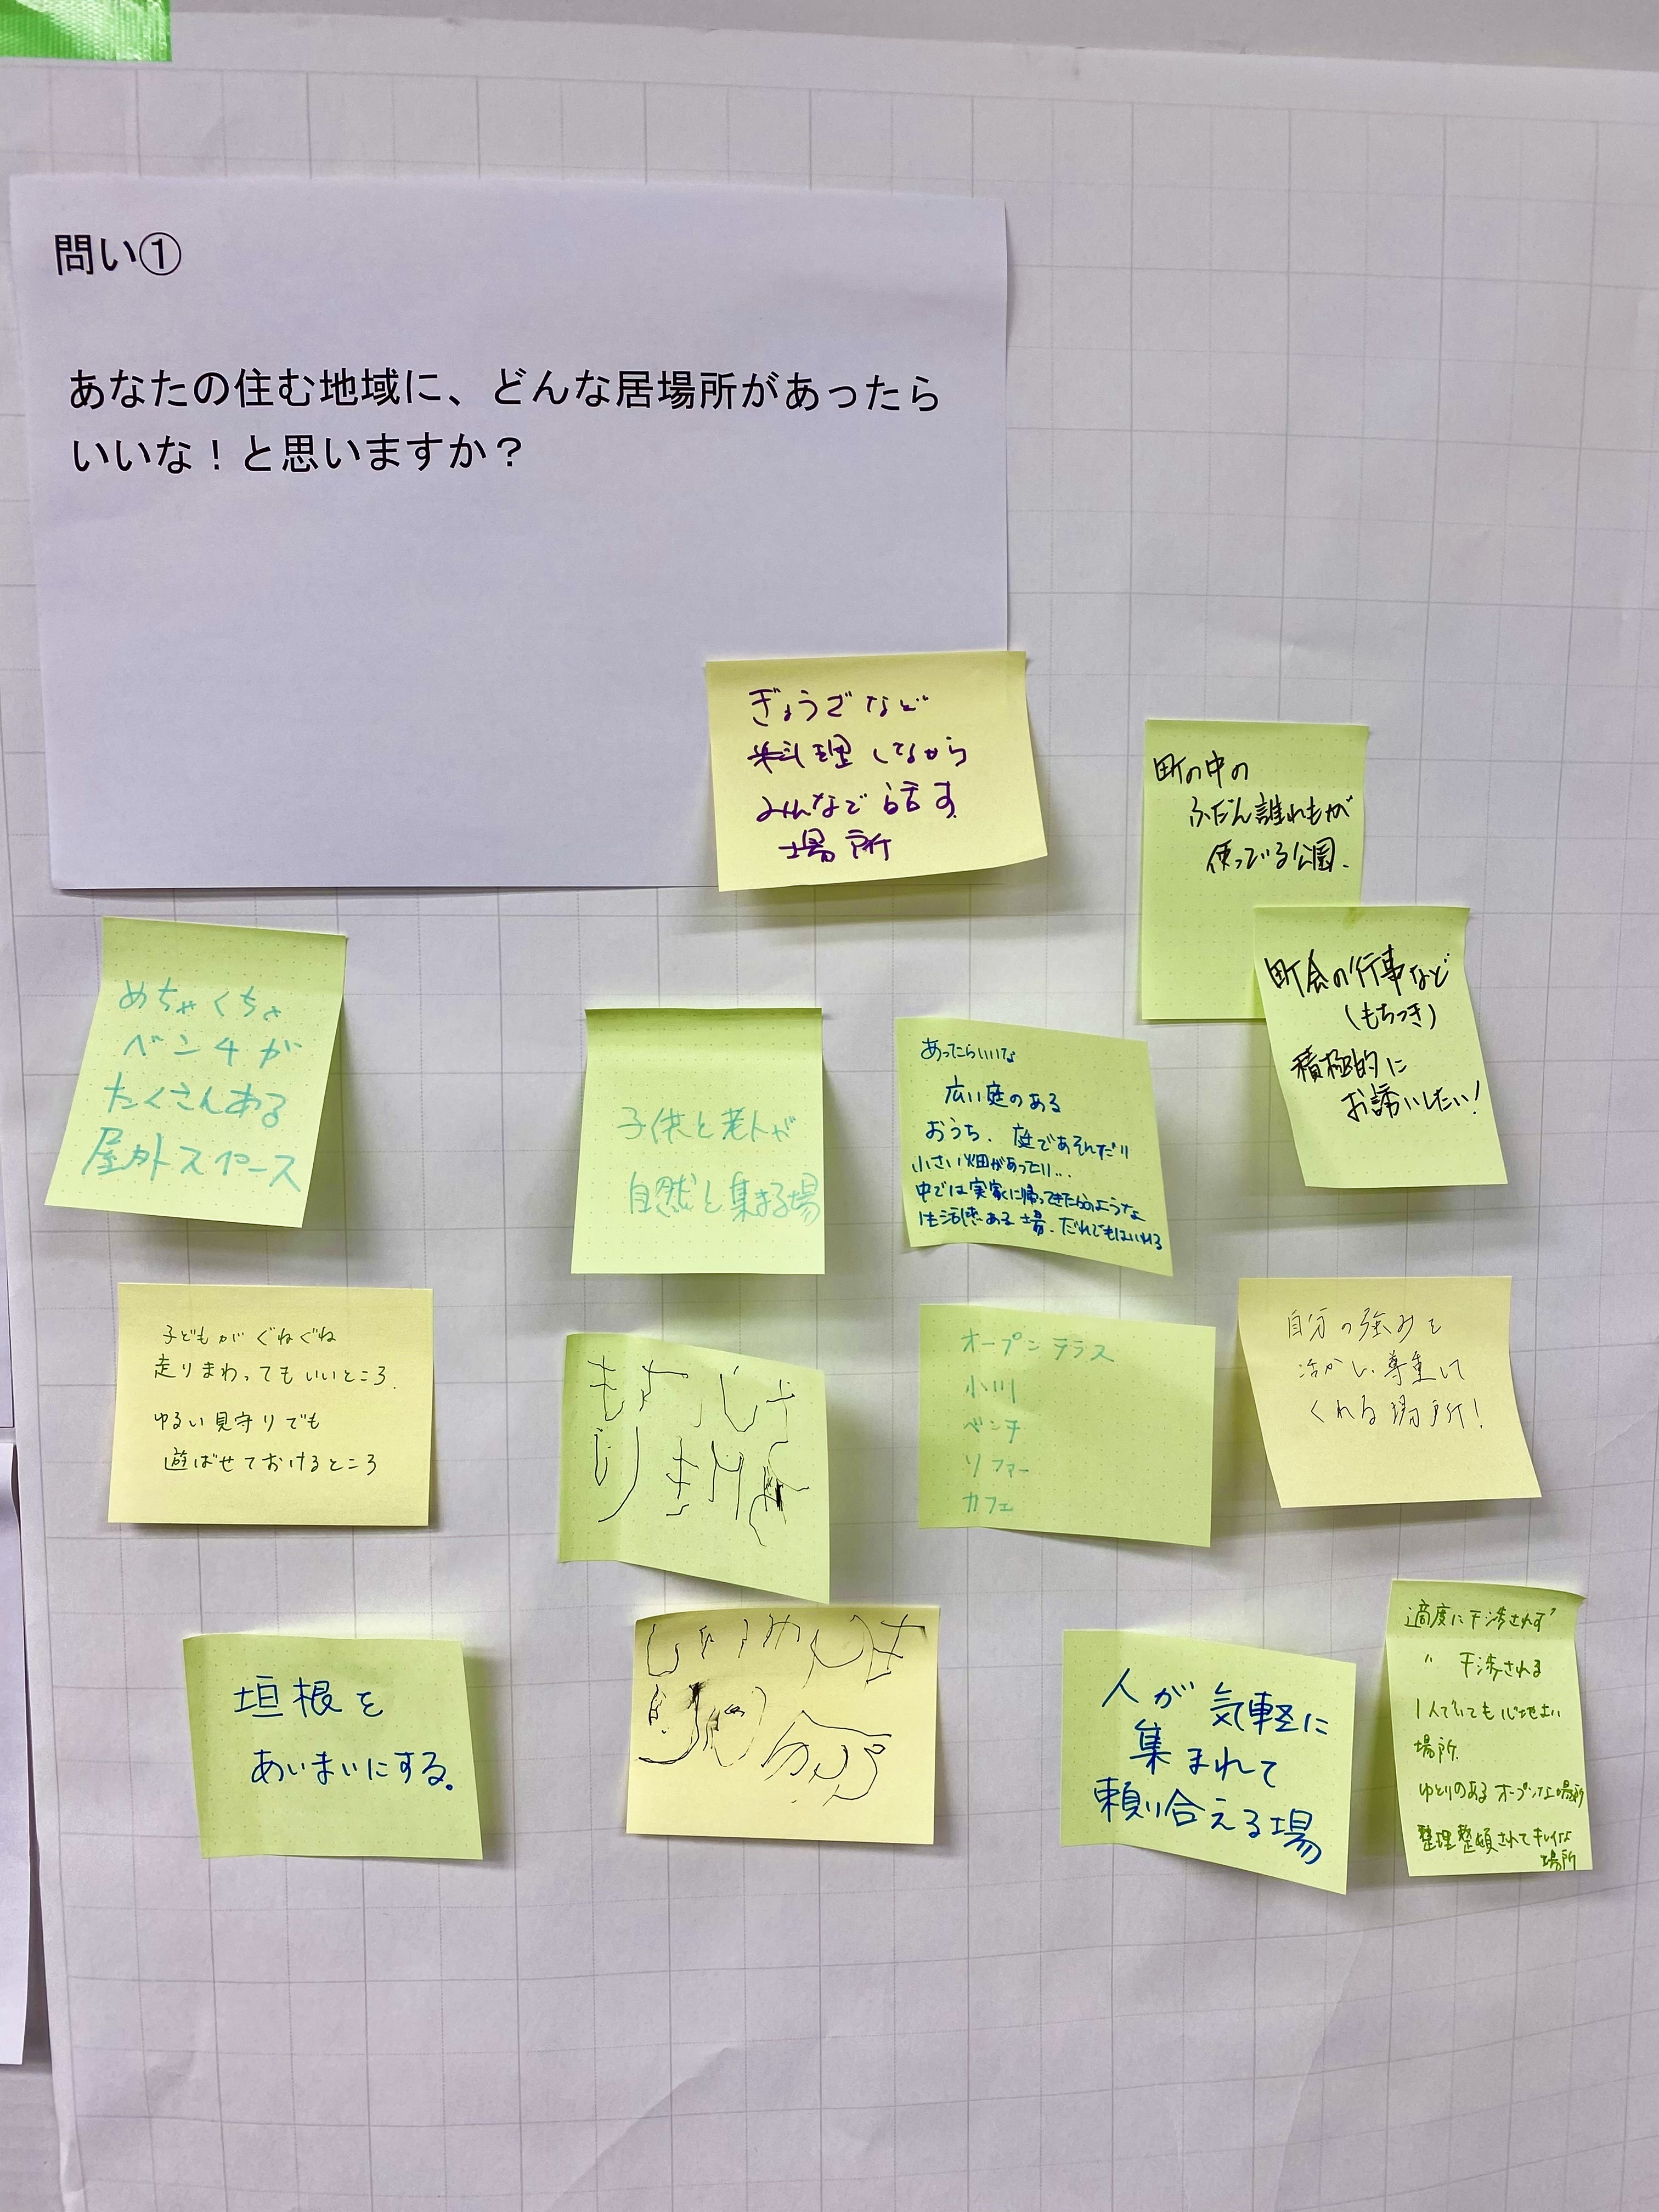 問い①
あなたの住む地域に、どんな居場所があったら
いいな！と思いますか？
ぎょうざなど
料理しながら
みんなで話す
場所
町の中の
ふだん誰れもが
使っている公園.
町会の行事など
(もちつき)
積極的に
お誘いしたい!
めちゃくちゃ
ベンチが
たくさんある
屋外スペース
子供と老人が
自然と集まる場
あったらいいな
広い庭のある
おうち. 庭であそんだり
小さい畑があったり...
中では実家に帰ってきたかのような
生活感ある場. だれでもはいれる
子どもがぐねぐね
走りまわってもいいところ.
ゆるい見守りでも
遊ばせておけるところ
オープンテラス
小川
ベンチ
ソファー
カフェ
自分の強みを
活かし、尊重して
くれる場所!
垣根を
あいまいにする。
人が気軽に
集まれて
頼り合える場
適度に干渉されず
〃 干渉される
1人でいても心地よい
場所.
ゆとりのあるオープンな場所
整理整頓されてキレイな
場所